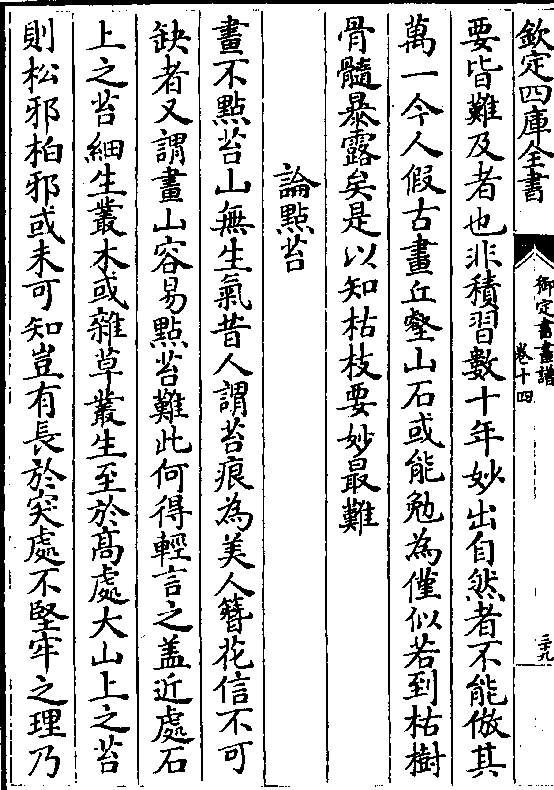 欽定四庫全書
御定書畫譜
卷十四
三十九
要皆難及者也非積習數十年妙出自然者不能倣其
萬一今人假古畫丘壑山石或能勉為僅似若到枯樹
骨髓暴露矣是以知枯枝要妙最難
論點苔
畫不點苔山無生氣昔人謂苔痕為美人簪花信不可
缺者又謂畫山容易點苔難此何得輕言之盖近處石
上之苔細生叢木或雜草叢生至於髙處大山上之苔
則松邪柏邪或未可知豈有長於突處不堅牢之理乃